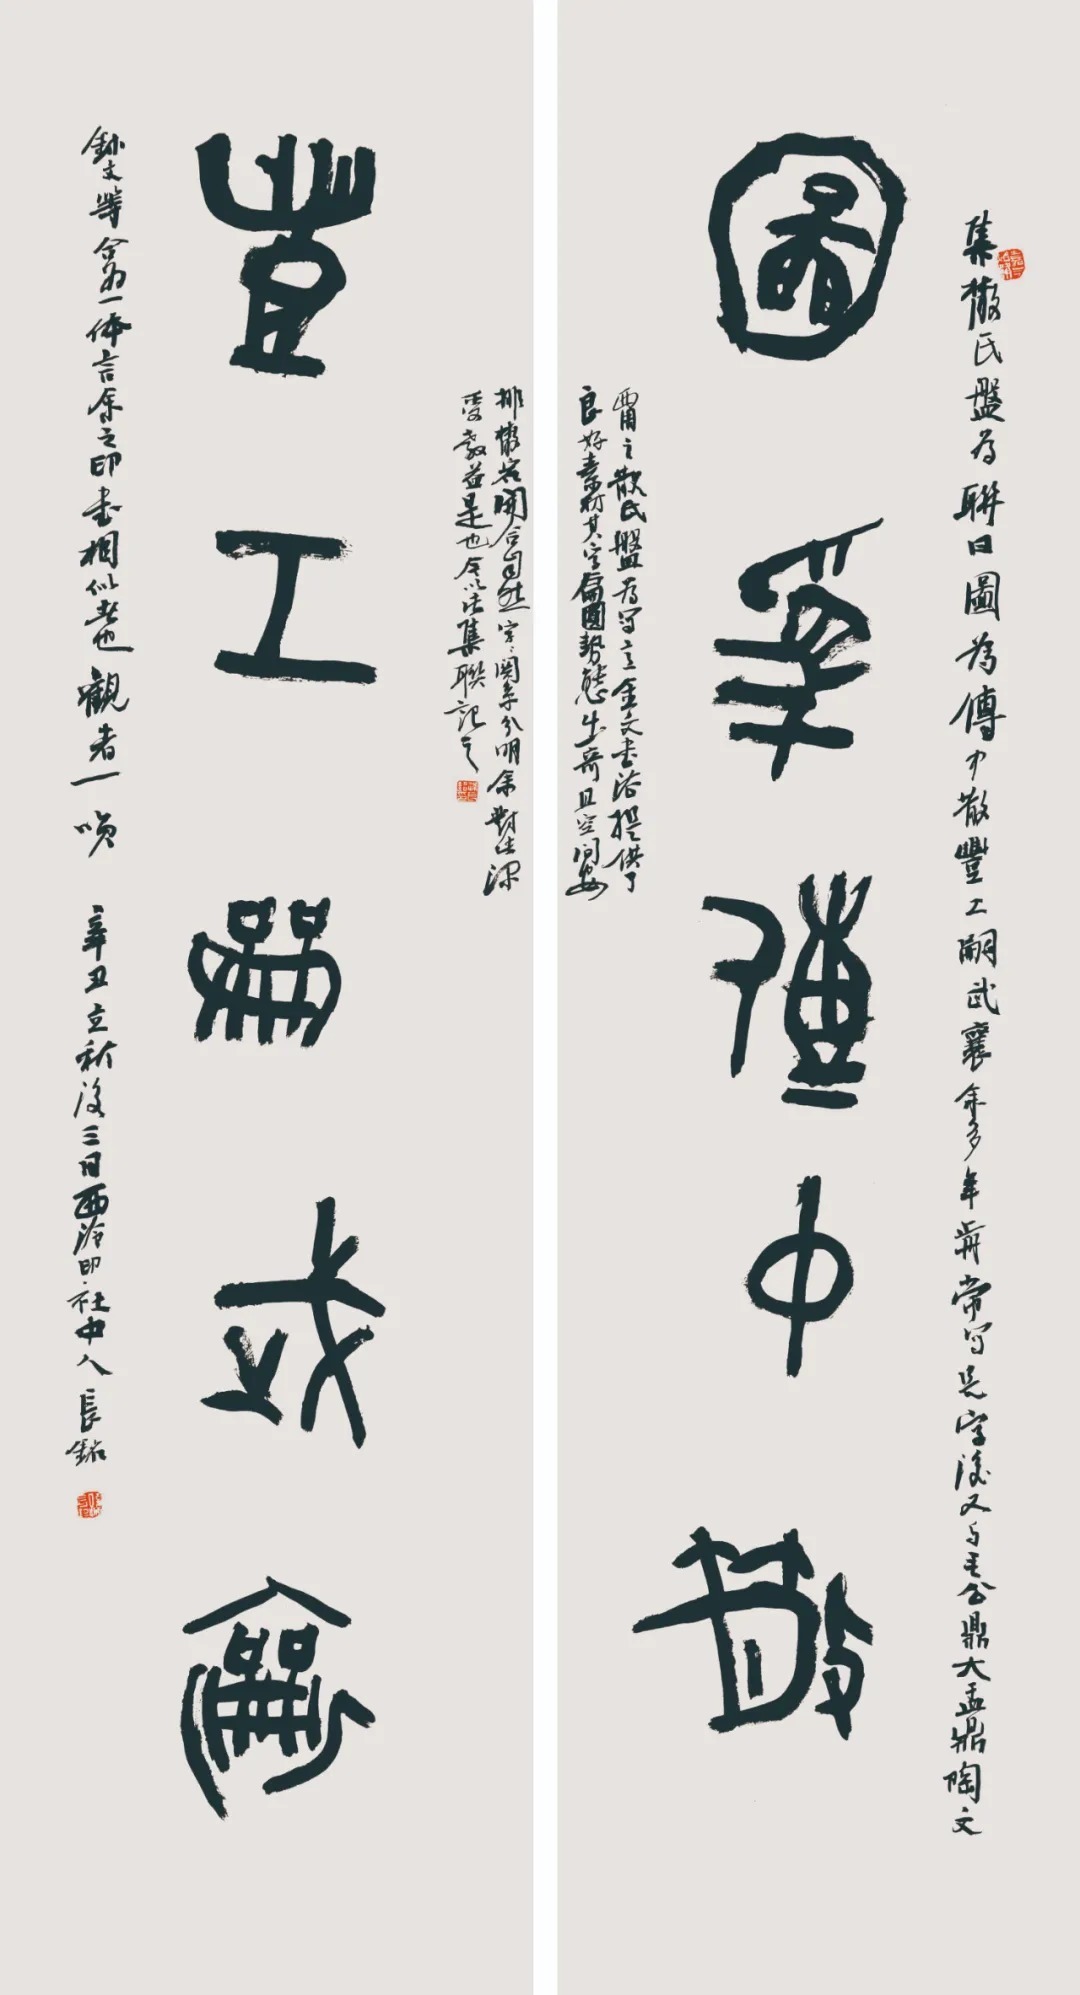 圖為傳中散
豐工嗣武龢
集散氏盤為聯曰圖為傳中散豐工嗣武襄余多年前常写是字後又与毛公鼎大盂鼎陶文
之散氏盤為写立金文書法提供了
良好素材其字扁圓勢態生奇且空间安
排散宕開合自然字字関系分明余對此深
受教益是也今以此集聯記之
鉨文等合为一体言余之印書相似者也觀者一唤
辛丑立秋後三日西泠印社中人長鉊